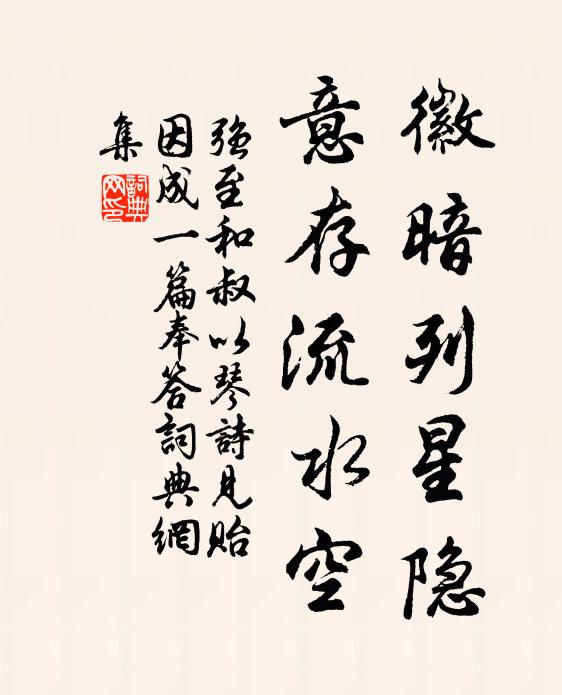 徽暗列星隐
意存流水空
强至和叔以琴詩見貽
因成一篇奉答詞典網
集
詞典
网印